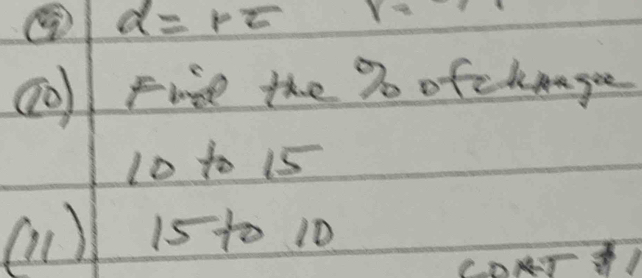 (9) d = rt
(10) Find the % of change
10 to 15
(11) 15 to 10